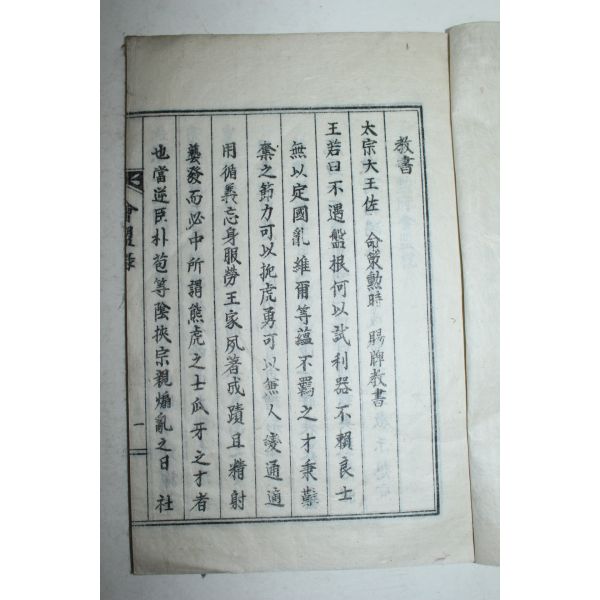 教書
太宗大王佐 命策勲時 賜牌教書
王若曰不遇盤根何以試利器不賴良士
無以定國亂維爾等蘊不羈之才秉蘗
蘗之節力可以扼虎勇可以無人變通適
用循義忘身服勞王家夙著成蹟且精射
藝發而必中所謂熊虎之士瓜牙之才者
也當逆臣朴苞等陰挾宗親煽亂之日 社
會盟錄
一